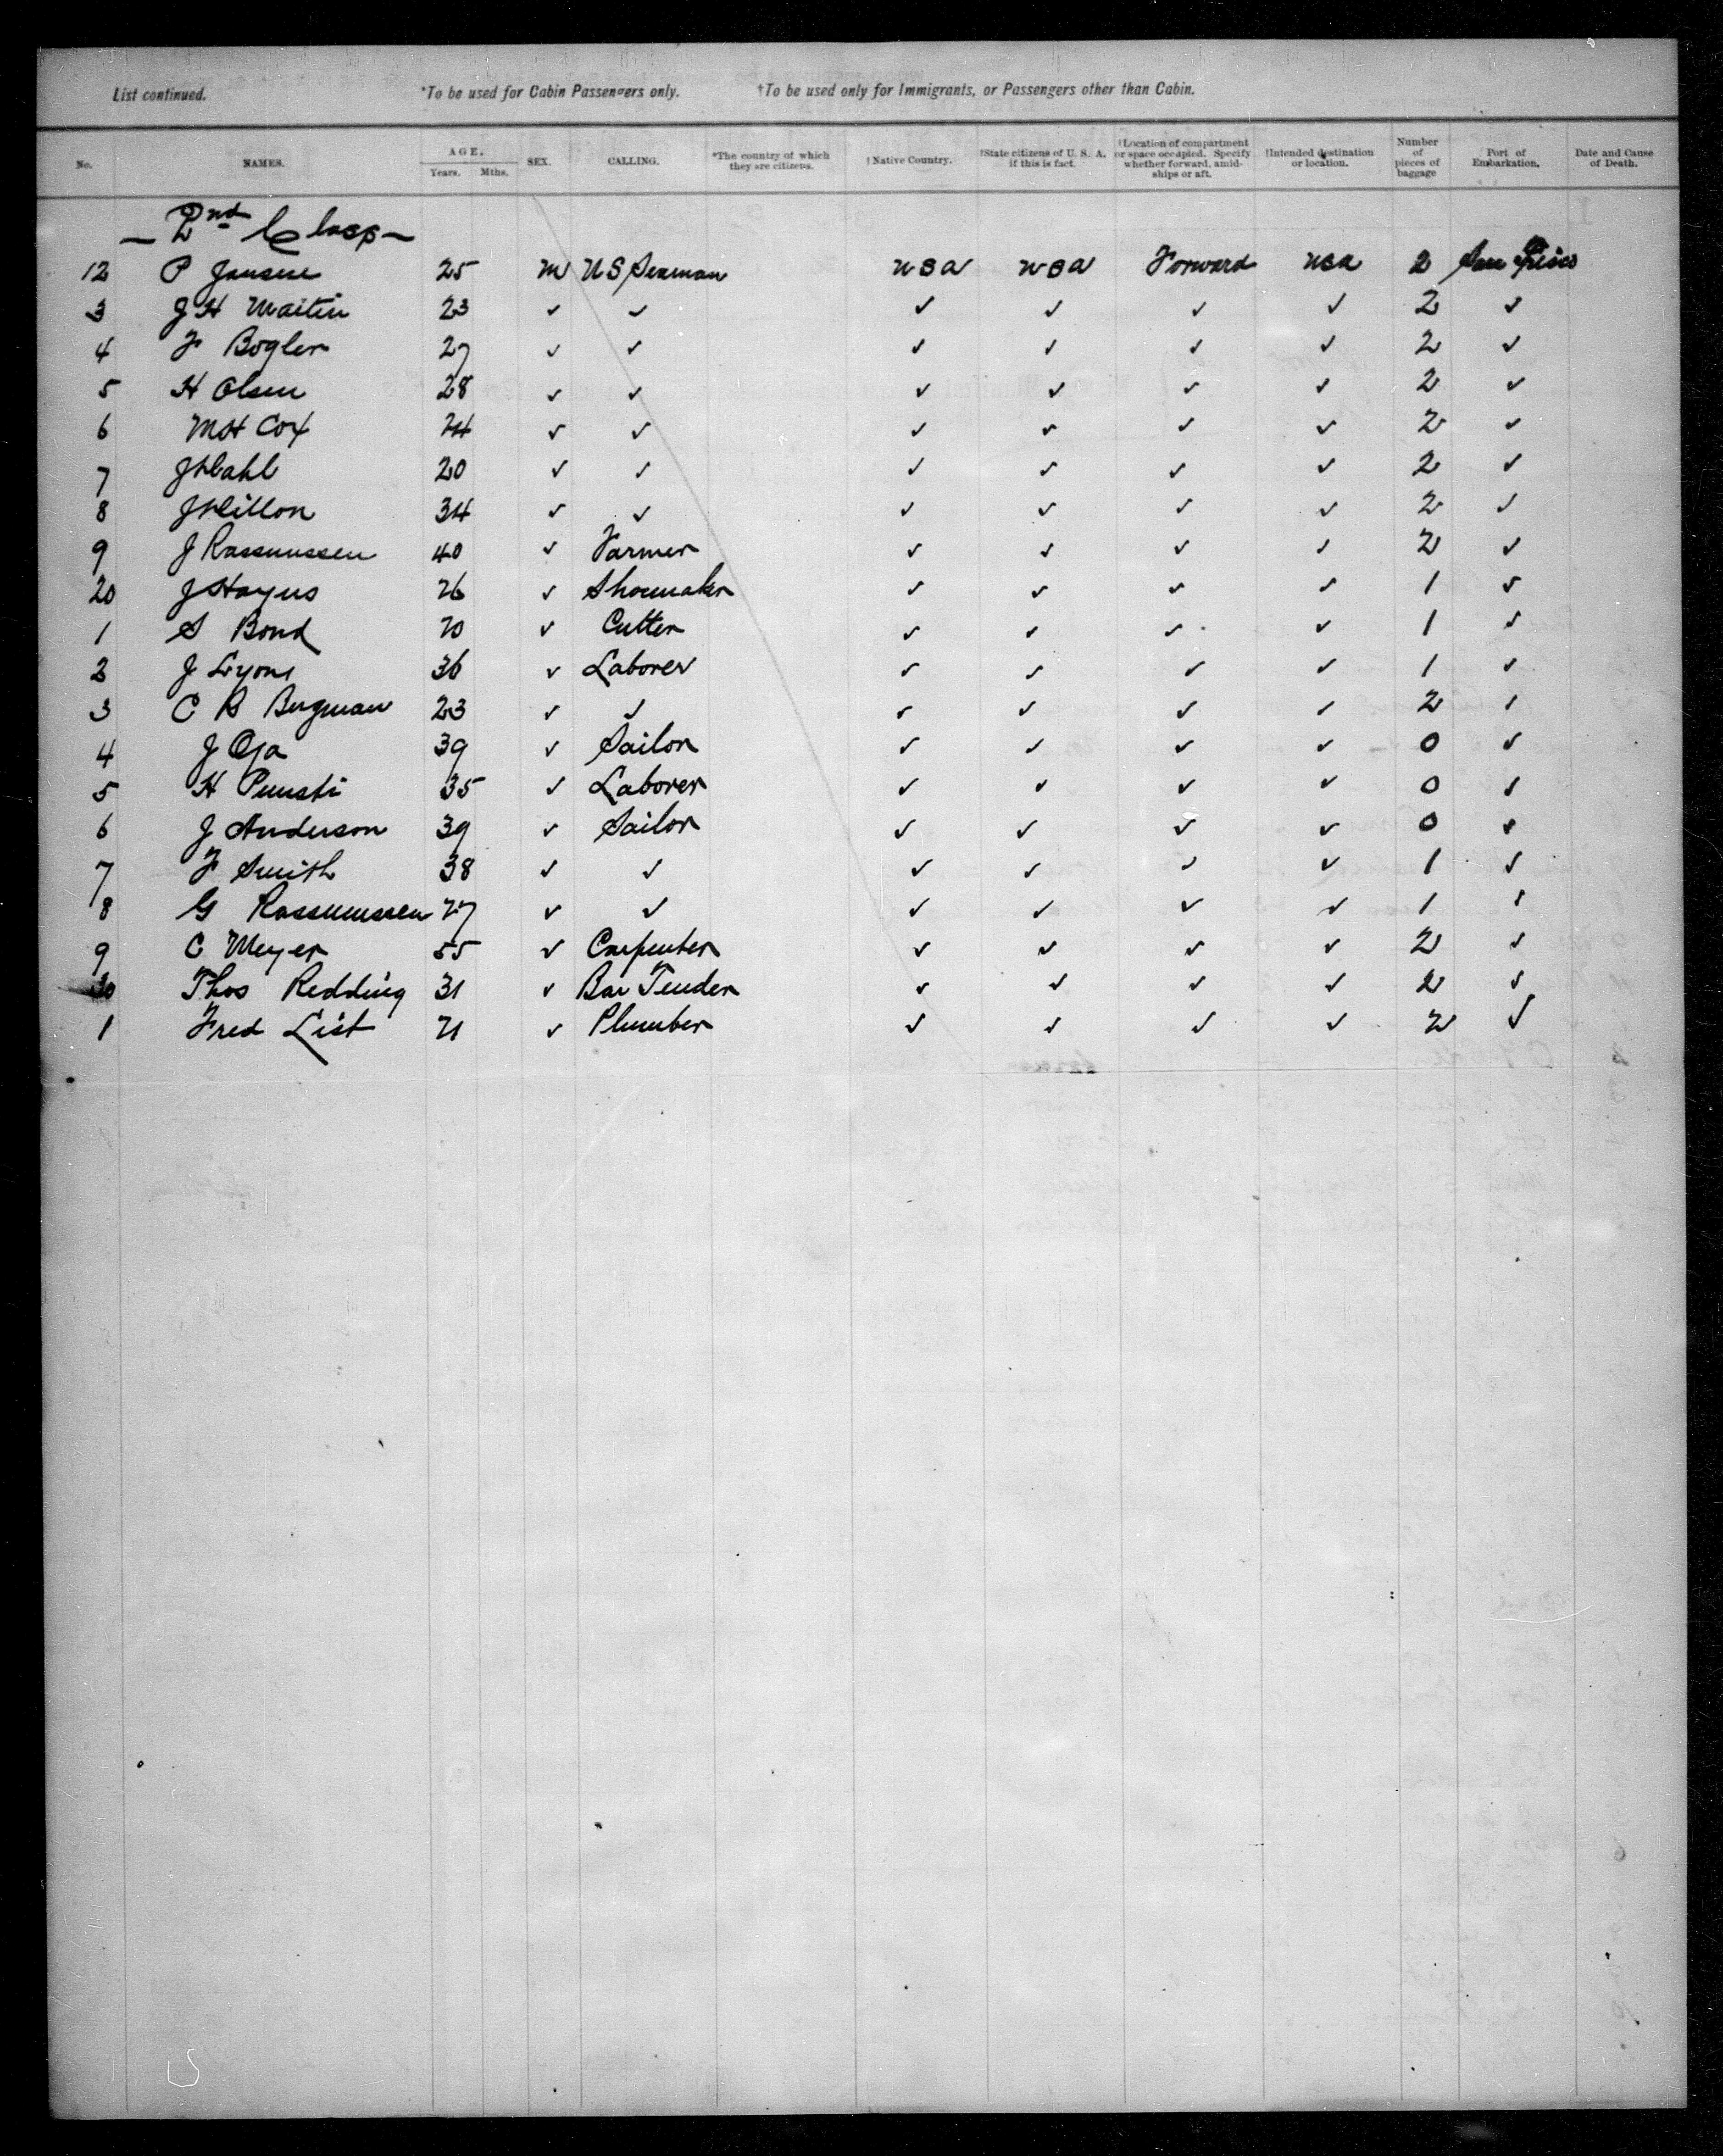 List continued. *To be used for Cabin Passengers only. †To be used only for Immigrants, or Passengers other than Cabin.
No. NAMES. AGE. Years. Mths. SEX. CALLING. *The country of which they are citizens. †Native Country. †State citizens of U. S. A. if this is fact. †Location of compartment or space occupied. Specify whether forward, amid-ships or aft. †Intended destination or location. Number of pieces of baggage Port of Embarkation. Date and Cause of Death.
— 2nd Class —
12 P Jansen 25 M US Seaman USA USA Forward USA 2 San Frisco
3 J H Martin 23 ✓ ✓ ✓ ✓ ✓ ✓ 2 ✓
4 F Bogler 27 ✓ ✓ ✓ ✓ ✓ ✓ 2 ✓
5 H Olsen 28 ✓ ✓ ✓ ✓ ✓ ✓ 2 ✓
6 M H Cox 24 ✓ ✓ ✓ ✓ ✓ ✓ 2 ✓
7 J Dahl 20 ✓ ✓ ✓ ✓ ✓ ✓ 2 ✓
8 J Dillon 34 ✓ ✓ ✓ ✓ ✓ ✓ 2 ✓
9 J Rassmussen 40 ✓ Farmer ✓ ✓ ✓ ✓ 2 ✓
20 J Haynes 26 ✓ Shoemaker ✓ ✓ ✓ ✓ 1 ✓
1 S Bond 20 ✓ Cutter ✓ ✓ ✓ ✓ 1 ✓
2 J Lyons 36 ✓ Laborer ✓ ✓ ✓ ✓ 1 ✓
3 C B Bergman 23 ✓ ✓ ✓ ✓ ✓ ✓ 2 ✓
4 J Oja 39 ✓ Sailor ✓ ✓ ✓ ✓ 0 ✓
5 H 35 ✓ Laborer ✓ ✓ ✓ ✓ 0 ✓
6 J Anderson 39 ✓ Sailor ✓ ✓ ✓ ✓ 0 ✓
7 F Smith 38 ✓ ✓ ✓ ✓ ✓ ✓ 1 ✓
8 G Rassmussen 27 ✓ ✓ ✓ ✓ ✓ ✓ 1 ✓
9 C Meyer 55 ✓ Carpenter ✓ ✓ ✓ ✓ 2 ✓
30 Thos Redding 31 ✓ Bar Tender ✓ ✓ ✓ ✓ 2 ✓
1 Fred List 21 ✓ Plumber ✓ ✓ ✓ ✓ 2 ✓